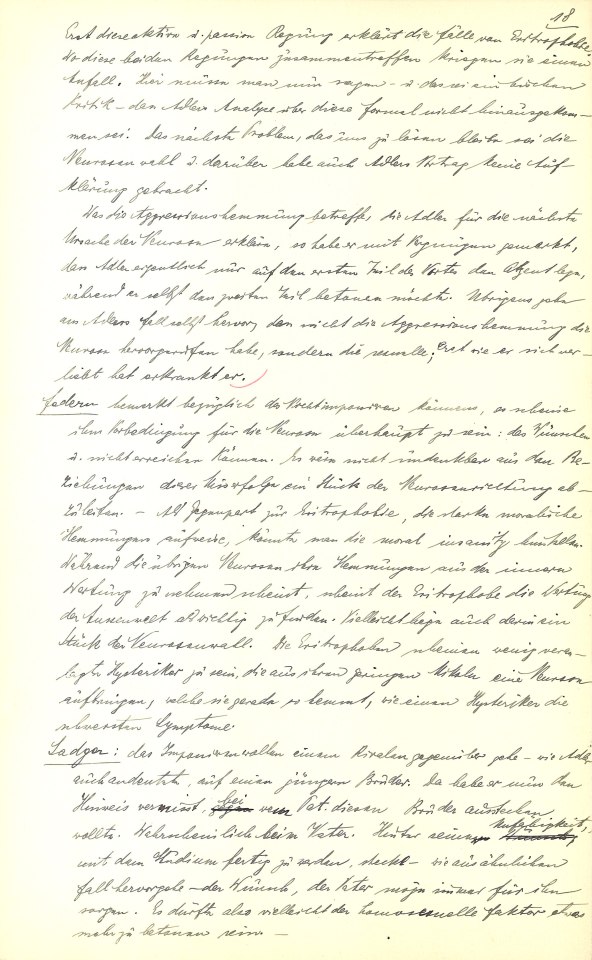 18
Erst diese aktion u. passion Regung erklärt die Fälle von Eritrophobie.
Wo diese beiden Regungen zusammentreffen kriegen sie einen
Anfall. Hier müsse man nun sagen - u. das sei ein bischen
Kritik - dass Adlers Analyse über diese formal nicht hinausgekom-
men sei. Das nächste Problem, das uns zu lösen bleibe sei die
Neurosenwahl u. darüber habe auch Adlers Vortrag keine Auf-
klärung gebracht.
Was die Aggressionshemmung betreffe, die Adler für die nächste
Ursache der Neurosen erkläre, so habe er mit Vergnügen gemerkt,
dass Adler eigentlich nur auf den ersten Teil des Wortes den Akzent lege,
während er selbst den zweiten Teil betonen möchte. Übrigens gehe
aus Adlers Fall selbst hervor, dass nicht die Aggressionshemmung die
Neurose hervorgerufen habe, sondern die sexuelle; erst wie er sich ver-
liebt hat erkrankt er.
Federn bemerkt bezüglich des Nichtimponieren könnens, es scheine
ihm Vorbedingung für die Neurose überhaupt zu sein: das Wünschen
u. nicht erreichen Können. Es wäre nicht undenkbar aus den Be-
ziehungen dieser Misserfolge ein Stück der Neurosenrichtung ab-
zuleiten. - Als Gegenpart zur Eritrophobie, die starke moralische
Hemmungen aufweise, könnte man die moral insanity hinstellen.
Während die übrigen Neurosen ihre Hemmungen aus der innern
Wertung zu nehmen scheint, scheint der Eritrophobe die Wertung
der Aussenwelt als wichtig zu finden. Vielleicht läge auch darin ein
Stück der Neurosenwahl. Die Eritrophoben scheinen wenig veran-
lagte Hysteriker zu sein, die aus ihren geringen Mitteln eine Neurose
aufbringen, welche sie gerade so hemmt, wie einen Hysteriker die
schwersten Symptome.
Sadger: das Imponierenwollen einem Rivalen gegenüber gehe - wie Adler
auch andeutete, auf einen jüngern Bruder. Da habe er nun den
Hinweis vermisst, bei wem Pat. diesen Bruder ausstechen
wollte. Wahrscheinlich beim Vater. Hinter seiner Unfähigkeit,
mit dem Studium fertig zu werden, steckt - wie aus ähnlichen
Fall hervorgehe - der Wunsch, der Vater möge immer für ihn
sorgen. Es dürfte also vielleicht der homosexuelle Faktor etwas
mehr zu betonen sein. -